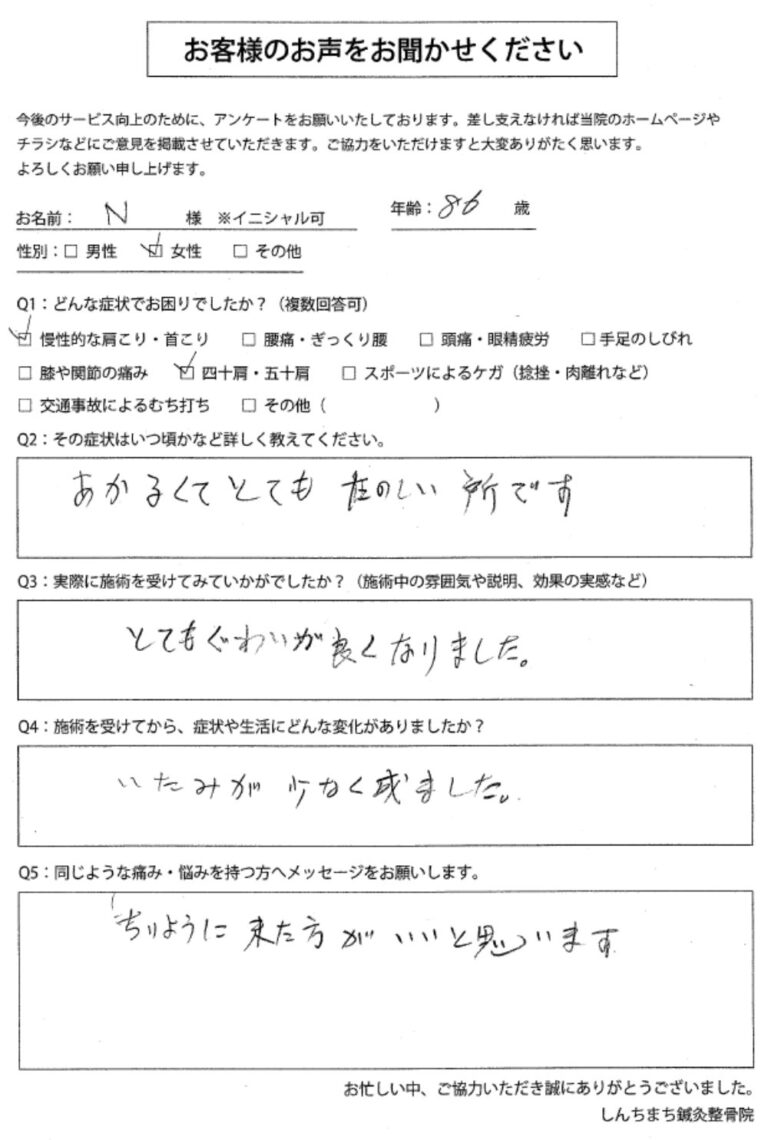 お客様のお声をお聞かせください
今後のサービス向上のために、アンケートをお願いいたしております。差し支えなければ当院のホームページや
チラシなどにご意見を掲載させていただきます。ご協力をいただけますと大変ありがたく思います。
よろしくお願い申し上げます。
お名前： N 様 ※イニシャル可 年齢：86 歳
性別：□ 男性 ☑ 女性 □ その他
Q1：どんな症状でお困りでしたか？（複数回答可）
☑ 慢性的な肩こり・首こり □ 腰痛・ぎっくり腰 □ 頭痛・眼精疲労 □手足のしびれ
□ 膝や関節の痛み ☑ 四十肩・五十肩 □ スポーツによるケガ（捻挫・肉離れなど）
□ 交通事故によるむち打ち □ その他（ ）
Q2：その症状はいつ頃かなど詳しく教えてください。
あかるくてとても たのしい 所です
Q3：実際に施術を受けてみていかがでしたか？（施術中の雰囲気や説明、効果の実感など）
とてもぐわいが良くなりました。
Q4：施術を受けてから、症状や生活にどんな変化がありましたか？
いたみが 少なく成ました。
Q5：同じような痛み・悩みを持つ方へメッセージをお願いします。
ちりように 来た方が いいと思います
お忙しい中、ご協力いただき誠にありがとうございました。
しんちまち鍼灸整骨院